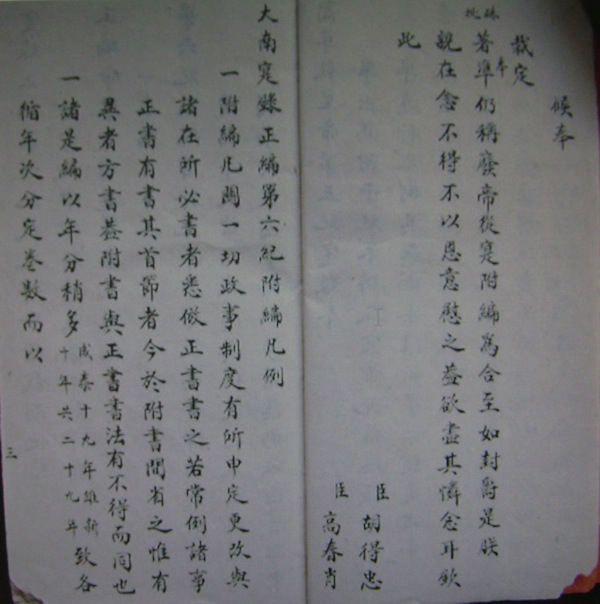 候奉
裁定
硃批
著準奉仍稱廢帝從寔附編為合至如封爵是朕
親在念不得不以恩意慰之蓋欲盡其憐念耳欽
此
臣胡得忠
臣高春肖
大南寔錄正編第六紀附編凡例
一附編凡闗一切政事制度有所申定更改與
諸在所必書者悉倣正書書之若常例諸事
正書有書其首節者今於附書間省之惟有
異者方書蓋附書與正書書法有不得而同也
一諸是編以年分稍多成泰十九年維新十年共二十九年致各
循年次分定卷數而以
三